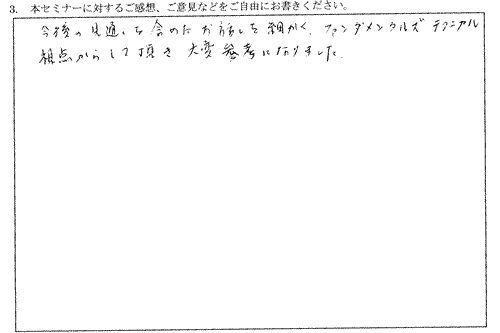 3. 本セミナーに対するご感想、ご意見などをご自由にお書きください。
今後の見通しを含めたお話しを細かく、ファンダメンタルズ テクニカル
視点からして頂き大変参考になりました。